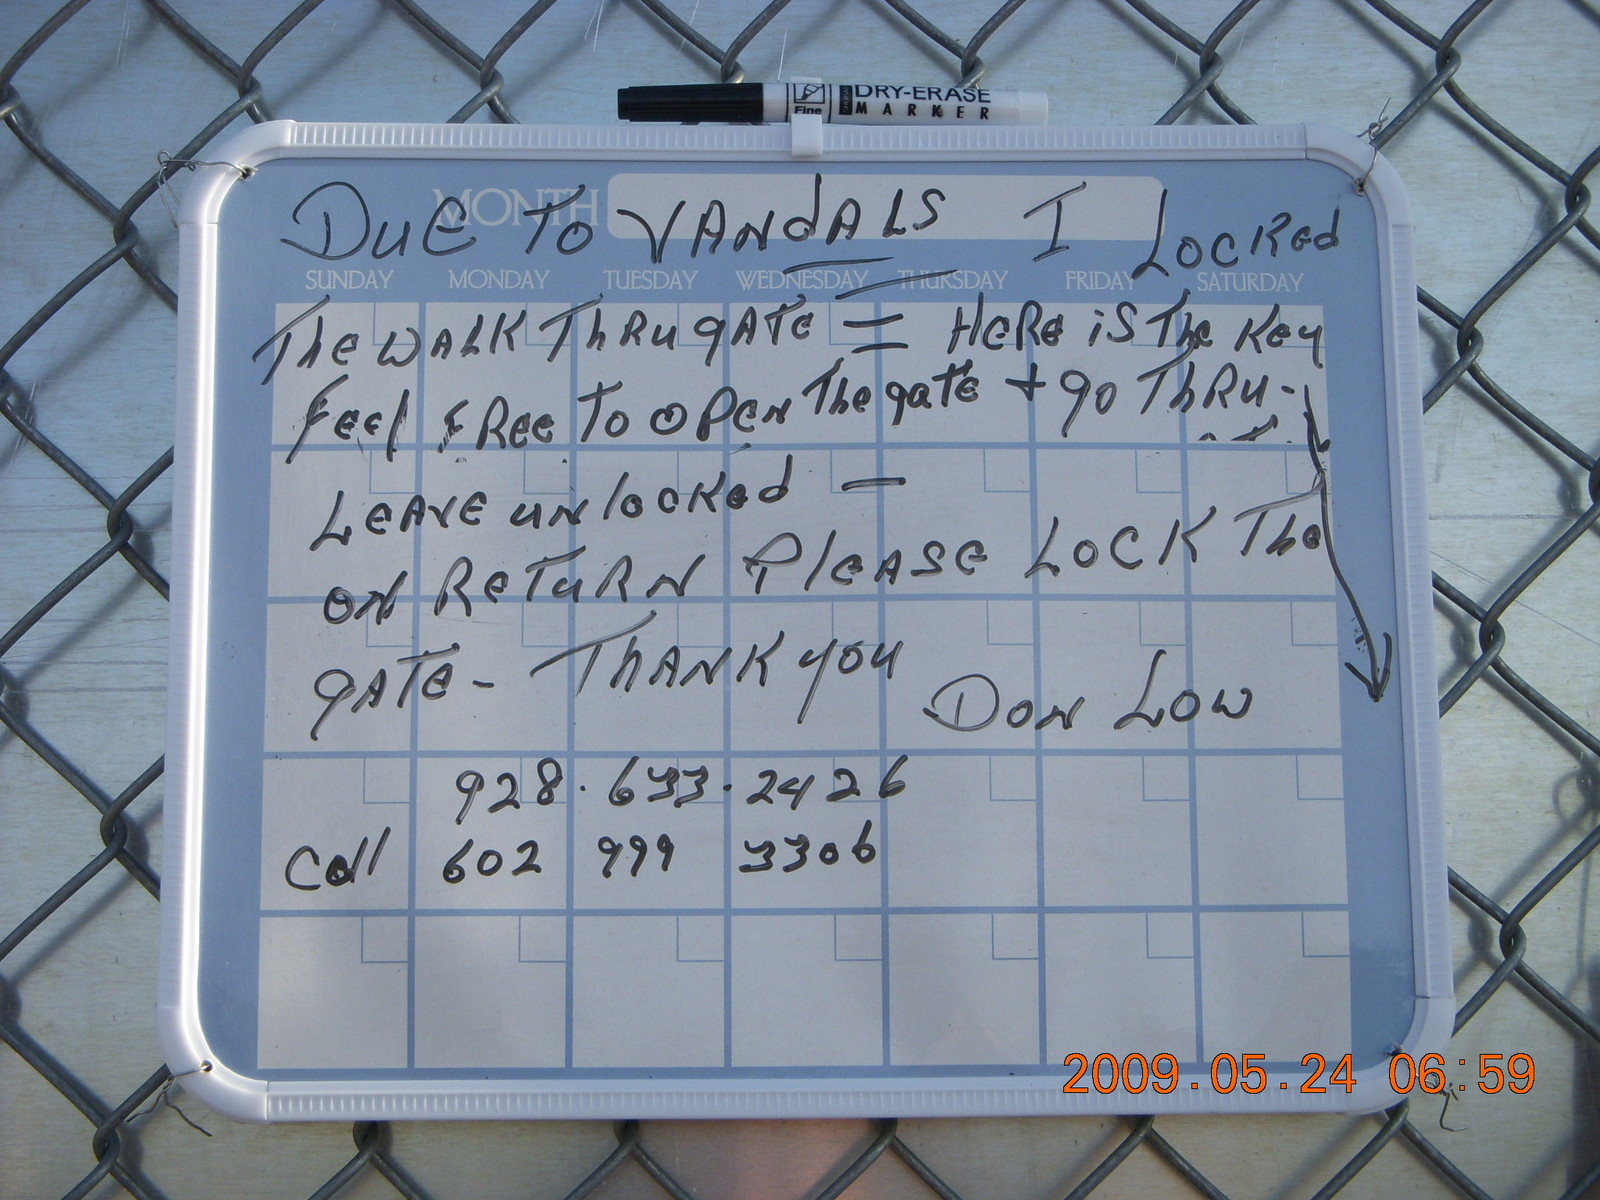 Fine DRY-ERASE
MARKER
MONTH
DUE TO VANdALS I LOCKed
SUNDAY MONDAY TUESDAY WEDNESDAY THURSDAY FRIDAY SATURDAY
The WALK THRU gATe = HeRe iS The Key
Feel FRee To OPeN The gate + go THRU-
LEAVE unlocKed -
ON ReTuRN PleASe LOCK The
gATe - THANK you
DON LOW
928·633·2426
Call 602 999 3306
2009.05.24 06:59